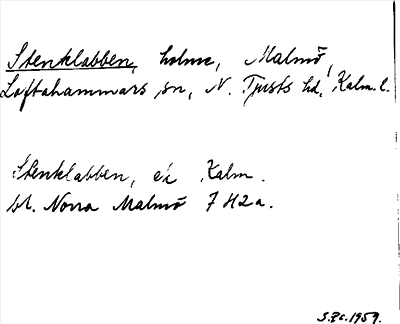 Stenklabben, holme, Malmö,
Loftahammars sn, N. Tjusts hd, Kalm. l.
Stenklabben, ek Kalm.
bl. Norra Malmö 7 H2a.
1959.